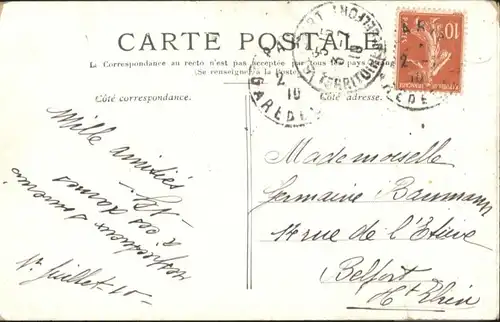 CARTE POSTALE
La Correspondance au recto n'est pas acceptée par tous les pays
(Se renseigner à la Poste)
Côté correspondance.
Côté adresse.
PARIS
2
10
GARE DE
BELFORT
TERRITOIRE
10
Mille amitiés
à ces dames
respectueux souvenir
1er Juillet 10
Mademoiselle
Germaine Baumann
14 rue de l'Etuve
Belfort
Ht Rhin